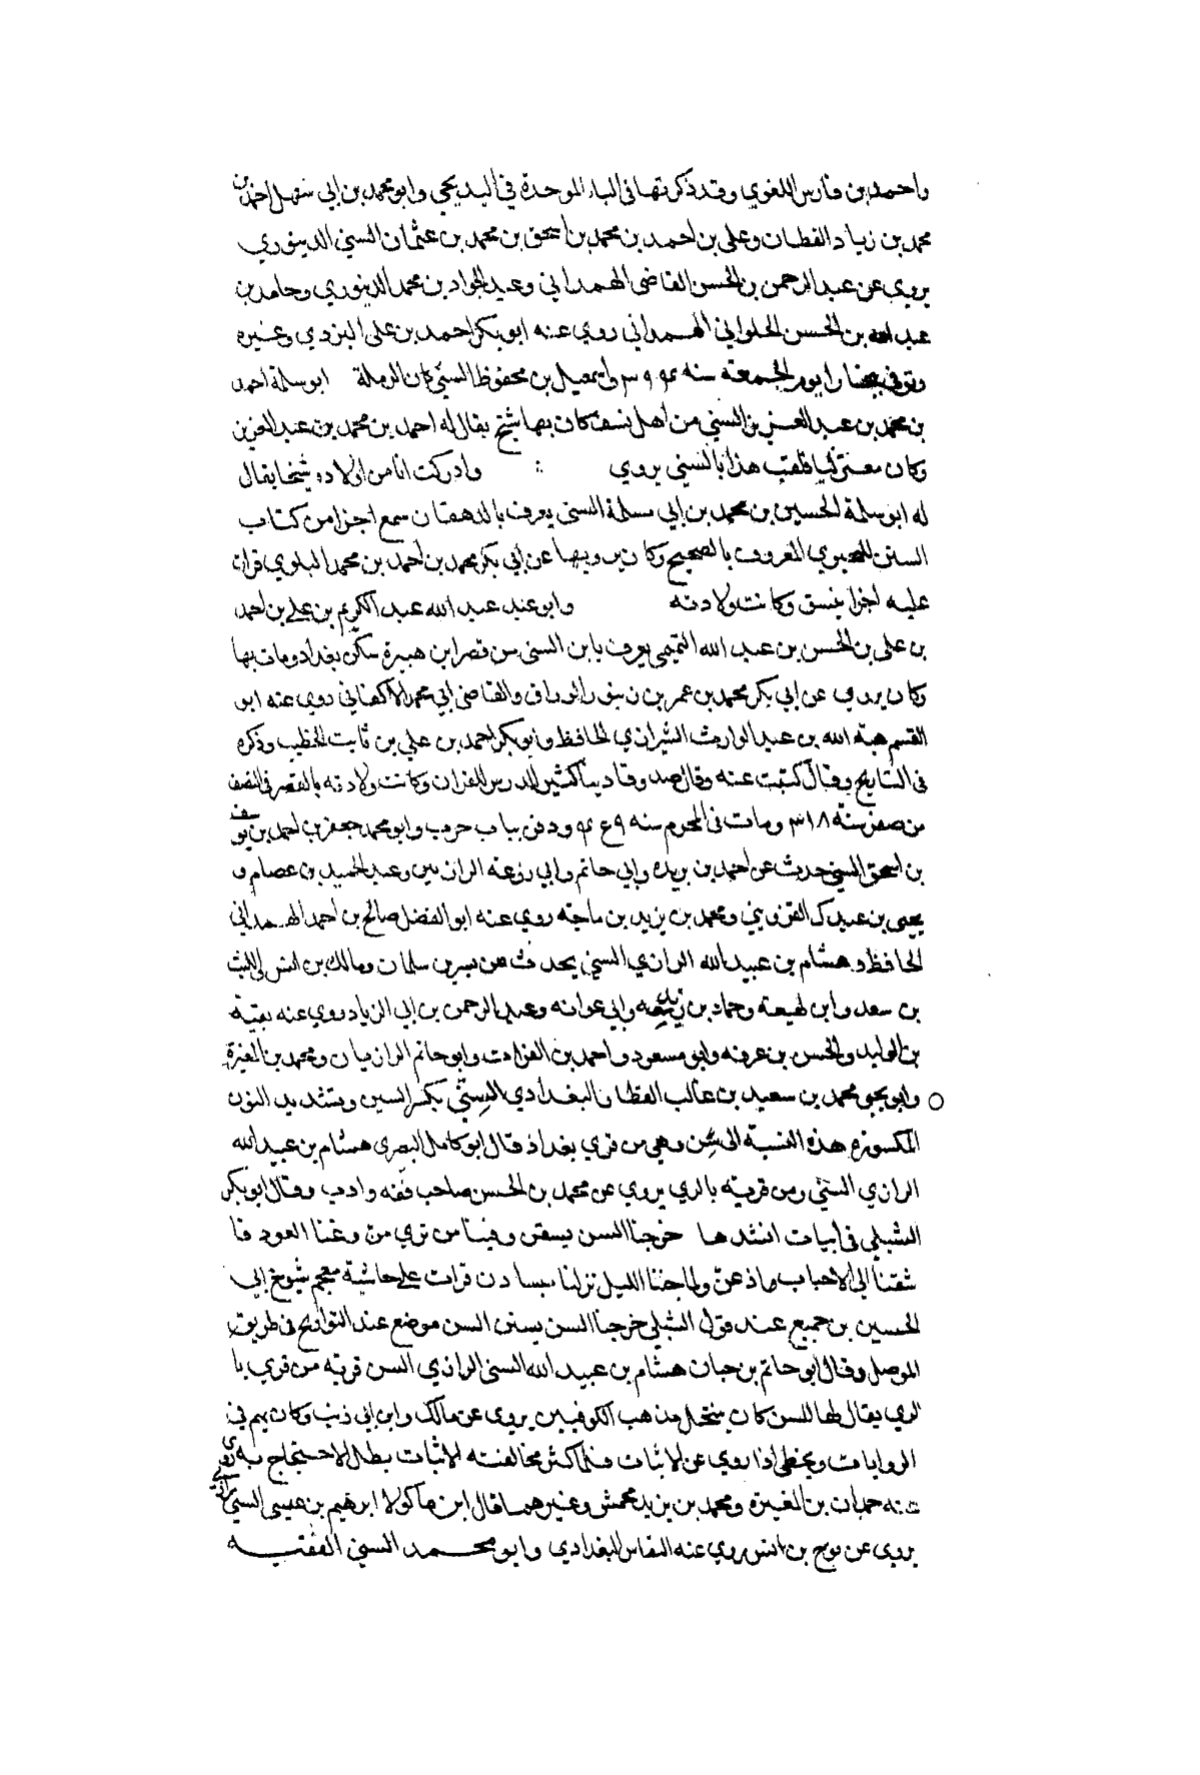 واحمد بن فارس اللغوي وقد ذكرتها في الباء الموحدة في البديحي وابو محمد بن ابي سهل احمد بن
محمد بن زياد القطان وعلي بن احمد بن محمد بن اسحق بن محمد بن عثمان السني الدينوري
يروي عن عبد الرحمن بن الحسن القاضي الهمداني وعبد الجواد بن محمد الدينوري وحامد بن
عبد الله بن الحسن الحلواني الهمداني روي عنه ابو بكر احمد بن علي اليزدي وغيره
وتوفي ببخارا يوم الجمعة سنه واسمعيل بن محفوظ السني كان الرملة ابو سلمة احمد
بن محمد بن عبد العزيز السني من اهل نسف كان بها شيخ يقال له احمد بن محمد بن عبد العزيز
وكان معتزليا فلقب هذا بالسني يروي وادركت انا من اولاده شيخا يقال
له ابو سلمة الحسين بن محمد بن ابي سلمة السني يعرف بالدهقان سمع اجزا من كتاب
السنن المعروف بالصحيح وكان يرويها عن ابي بكر محمد بن احمد بن محمد البلدي قرات
عليه اجزا بنسف وكانت ولادته وابو عبد الله عبد الكريم بن علي بن احمد
بن علي بن الحسن بن عبد الله التميمي يعرف بابن السني من قصر ابن هبيرة سكن بغداد ومات بها
وكان يروي عن ابي بكر محمد بن عمر بن زنبور الوراق والقاضي ابي محمد الاكفاني روي عنه ابو
القسم هبة الله بن عبد الوارث الشيرازي الحافظ وابو بكر احمد بن علي بن ثابت الخطيب وذكره
في التاريخ وقال كتبت عنه وقال صدوقا دينا كثير الدرس للقران وكانت ولادته بالقصر في النصف
من صفر سنة ٣١٨ ومات في المحرم سنه ودفن بباب حرب وابو محمد جعفر بن احمد بن يوسف
بن اسحق السني حدث عن احمد بن بريده وابي حاتم وابي زرعه الرازيين وعبد الحميد بن عصام و
يحيى بن عبدك القزويني ومحمد بن يزيد بن ماجة روي عنه ابو الفضل صالح بن احمد الهمداني
الحافظ وهشام بن عبيد الله الرازي السني يحدث عن بشر بن سلمان ومالك بن انس والليث
بن سعد وابن لهيعة وحماد بن زيد وابي عوانه وعبد الرحمن بن ابي الزناد روي عنه بقية
بن الوليد والحسن بن عرفه وابو مسعود واحمد بن الفرات وابو حاتم الرازيان ومحمد بن المغيرة
وابو يحيى محمد بن سعيد بن غالب القطان البغدادي السِنّي بكسر السين وتشديد النون
المكسورة هذه النسبة الى سِن وهي من قري بغداذ قال ابو كامل البصري هشام بن عبيد الله
الرازي السني ومن قرية بالري يروي عن محمد بن الحسن صاحب فقه وادب وقال ابو بكر
الشبلي في ابيات انشدها خرجنا السن يستن وفينا من تري من وغنا العود فا
شقنا الي الاحباب ولما جننا الليل نزلنا قرات علي حاشية معجم شيوخ ابي
الحسين بن جميع عند قول الشبلي خرجنا السن يستن السن موضع عند البوازيج في طريق
الموصل وقال ابو حاتم بن حبان هشام بن عبيد الله السني الرازي السن قرية من قري با
لري يقال لها السن كان ينتحل مذهب الكوفيين يروي عن مالك وابن ابي ذئب وكان يهم في
الروايات ويخطي اذا روي عن الاثبات فلما كثر مخالفته الاثبات بطل الاحتجاج به روي
عنه حمدان بن المغيرة ومحمد بن يزيد محمش وغيرهما قال ابن ماكولا ابرهيم بن عيسى السني رازي
يروي عن نوح بن انس روي عنه النقاش البغدادي وابو محمد السني الفقيه